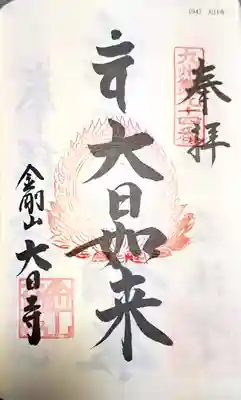 奉拝
大日如来
金剛山
大日寺